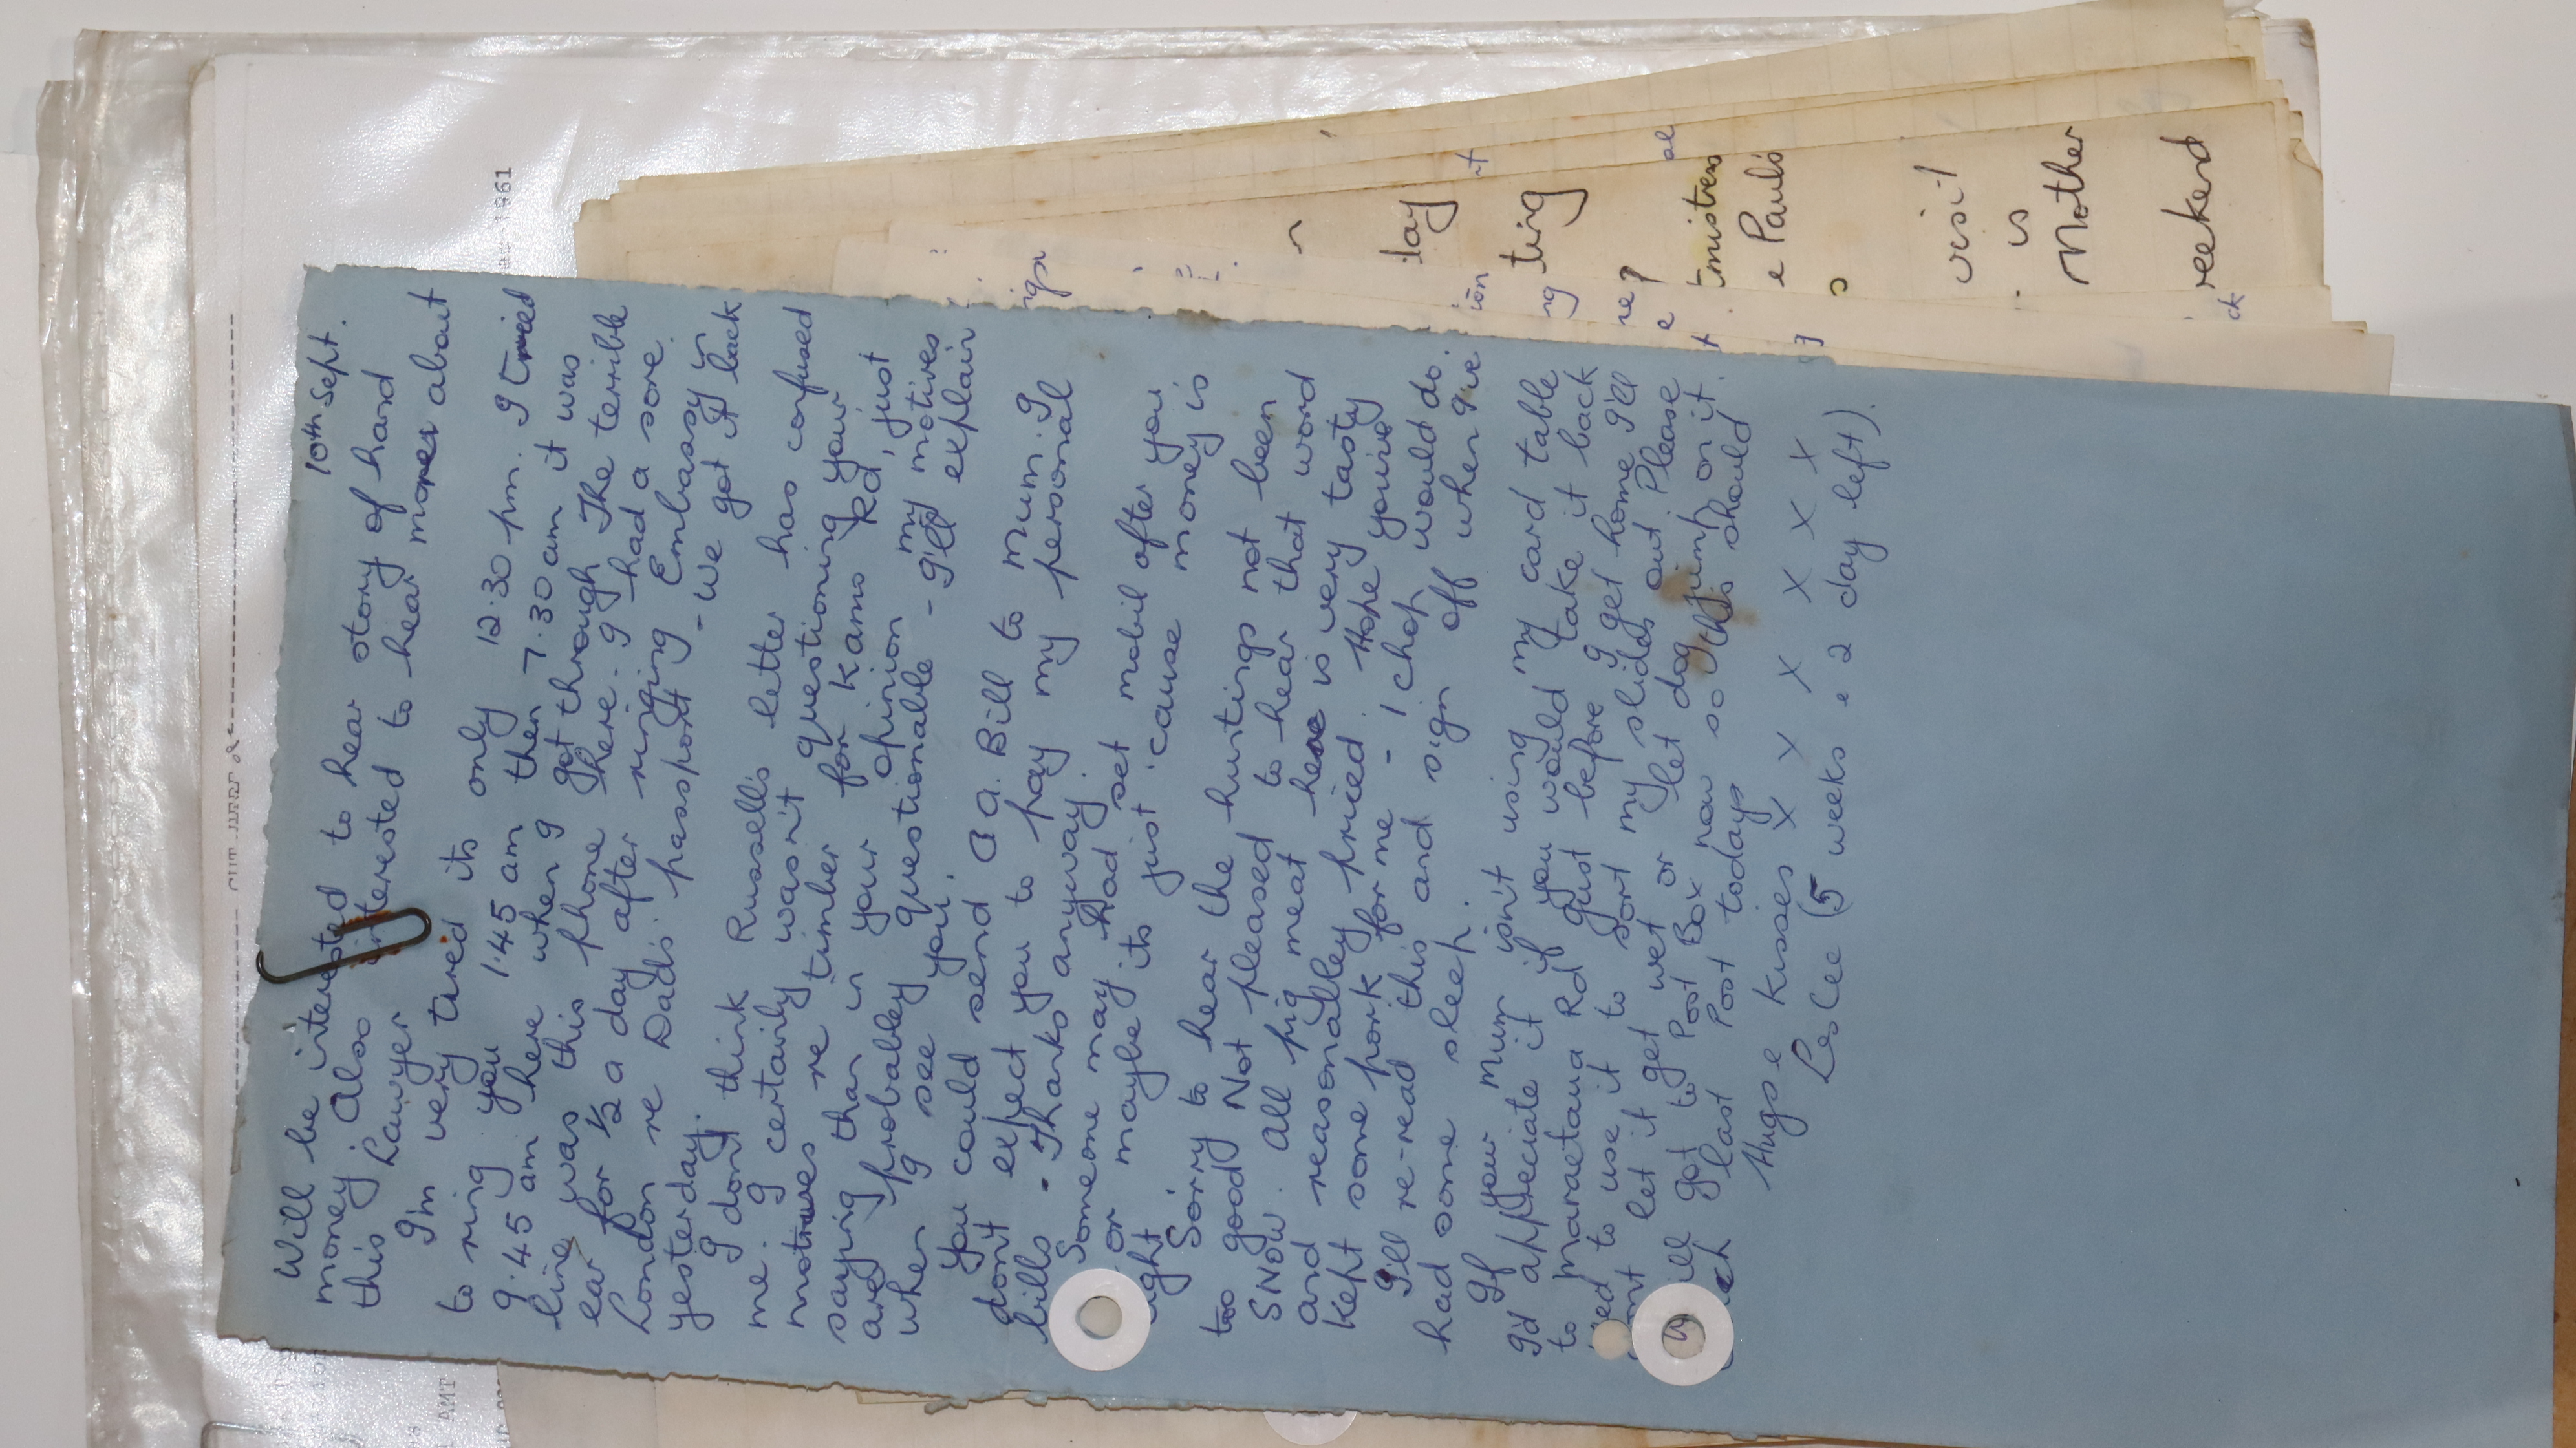 10th Sept.
Will be interested to hear story of hard
money. Also interested to hear more about
this Lawyer
I'm very tired its only 12.30 pm. I tried
to ring you 1.45 am then 7.30 am it was
9.45 am here when I got through. The terrible
line was this phone here. I had a sore
ear for ½ a day after ringing Embassy in
London re Dad's passport - we got it back
yesterday.
I dont think Russells letter has confused
me. I certainly wasn't questioning your
motives re timber for Kamo Rd, just
saying that in your opinion my motives
are probabley questionable - I'll explain
when I see you.
You could send B.A. Bill to Mum. I
dont expect you to pay my personal
bills - Thanks anyway.
Someone may had set mobil after you
or maybe its just 'cause money is
tight
Sorry to hear the huntings not been
too good Not pleased to hear that word
SNOW. All pig meat here is very tasty
and reasonabley priced. Hope you've
kept some pork for me - 1 chop would do.
I'll re-read this and sign off when I've
had some sleep.
If your Mum isn't using my card table
I'd appreciate it if you would take it back
to Maraetaua Rd just before I get home I'll
need to use it to sort my slides out Please
dont let it get wet or let dog jump on it.
Will got to Post Box now so this should
catch last Post today
Hugs e Kisses X X X X X X
Leslee (5 weeks e 2 day left).
1961
AMT
lay
ting
mistress
e Paul's
visit
is
Mother
eekend